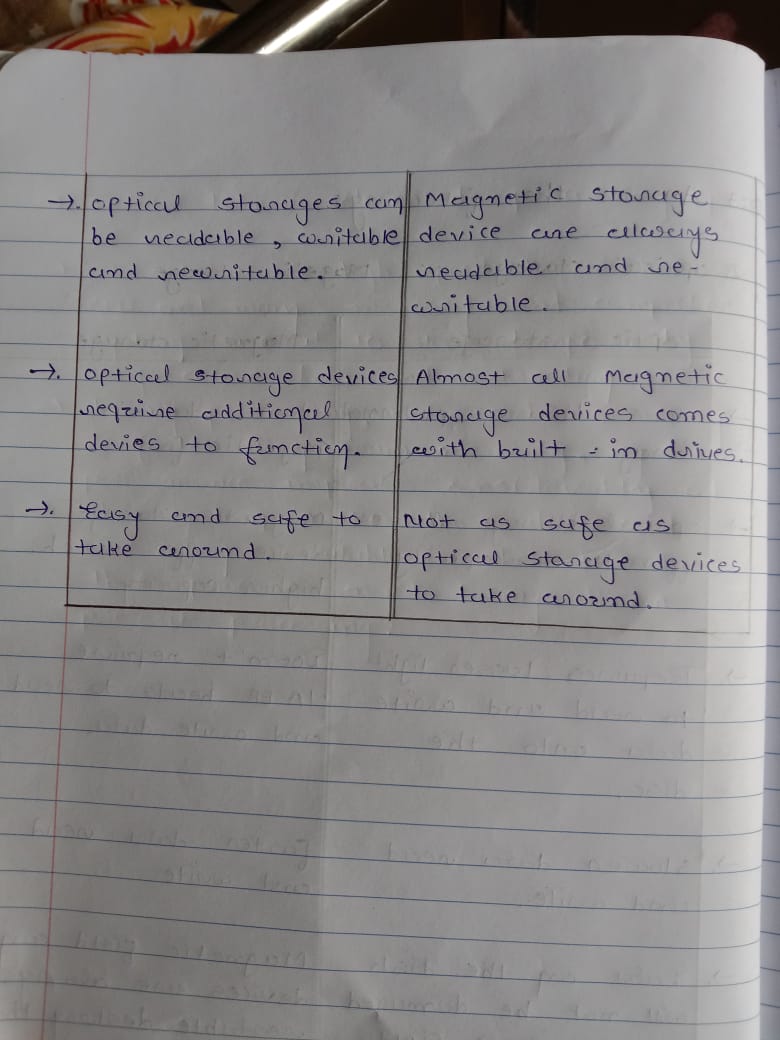 →. optical storages can
be readable, writable
and rewritable.
Magnetic storage
device are always
readable and re-
writable.
→. optical storage devices
require additional
devies to function.
Almost all magnetic
storage devices comes
with built-in drives.
→. Easy and safe to
take around.
Not as safe as
optical storage devices
to take around.